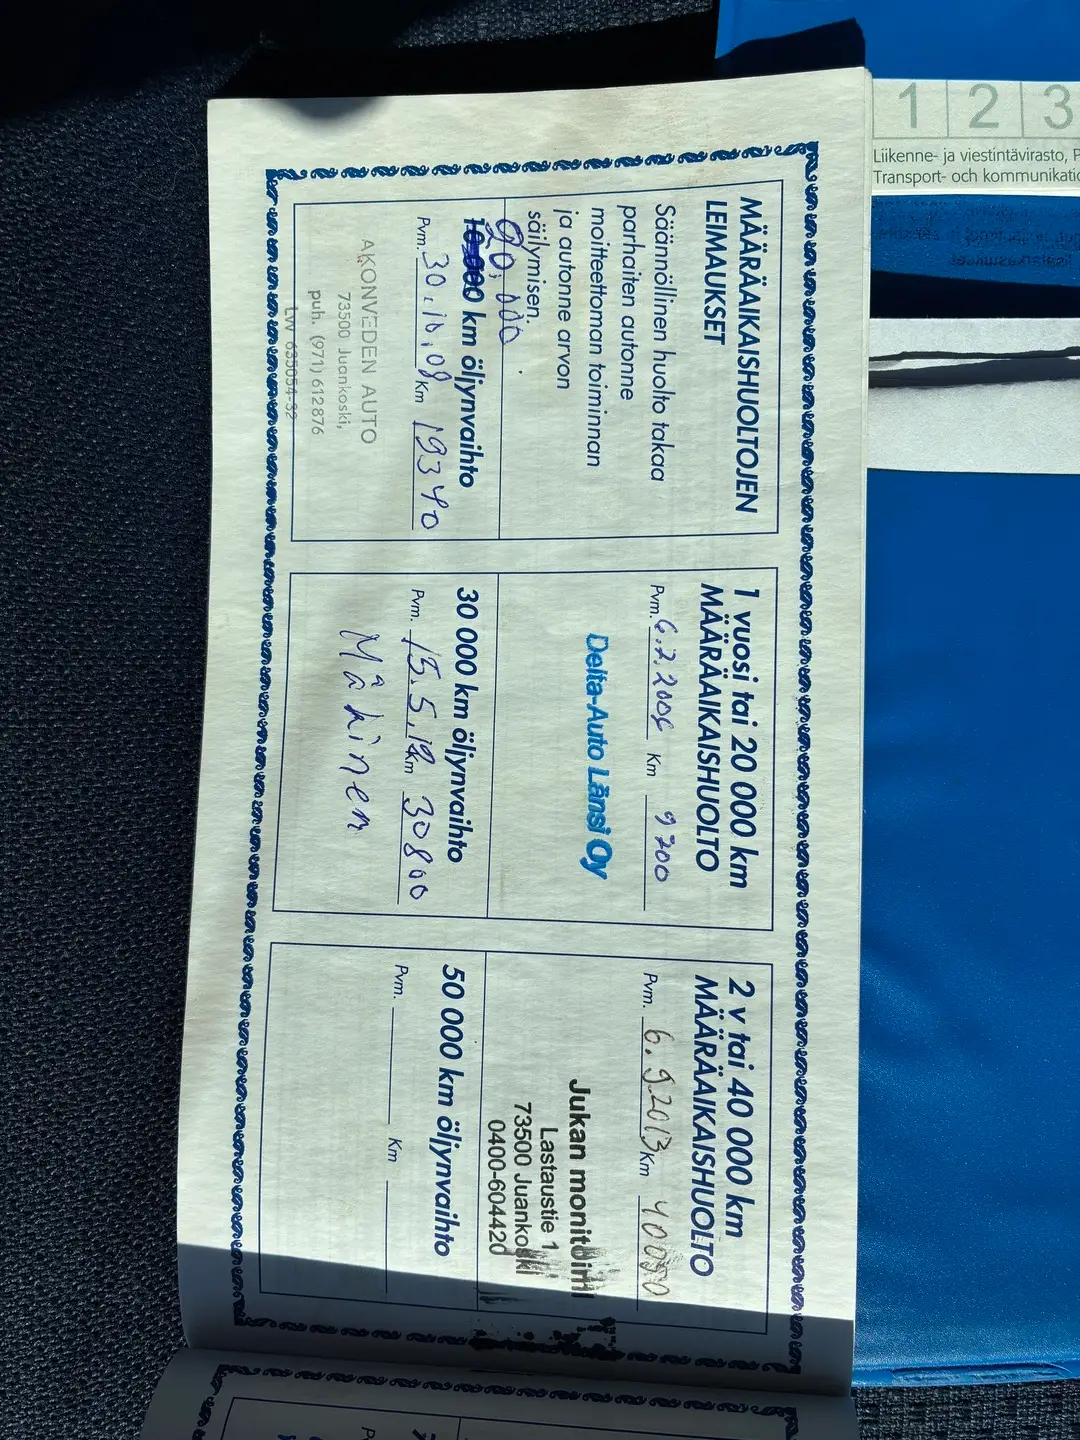 MÄÄRÄAIKAISHUOLTOJEN
LEIMAUKSET
Säännöllinen huolto takaa
parhaiten autonne
moitteettoman toiminnan
ja autonne arvon
säilymisen.
20.000
10 000 km öljynvaihto
Pvm. 30.10.08 Km 19340
AKONVEDEN AUTO
73500 Juankoski,
puh. (971) 612876
LVV 635054-32
1 vuosi tai 20 000 km
MÄÄRÄAIKAISHUOLTO
Pvm. 6.2.2006 Km 9200
Delta-Auto Länsi Oy
30 000 km öljynvaihto
Pvm. 15.5.12 Km 30800
Mäkinen
2 v tai 40 000 km
MÄÄRÄAIKAISHUOLTO
Pvm. 6.9.2013 Km 40050
Jukan monitoimi
Lastaustie 1
73500 Juankoski
0400-604420
50 000 km öljynvaihto
Pvm. Km
1 2 3
Liikenne- ja viestintävirasto, P
Transport- och kommunikatio